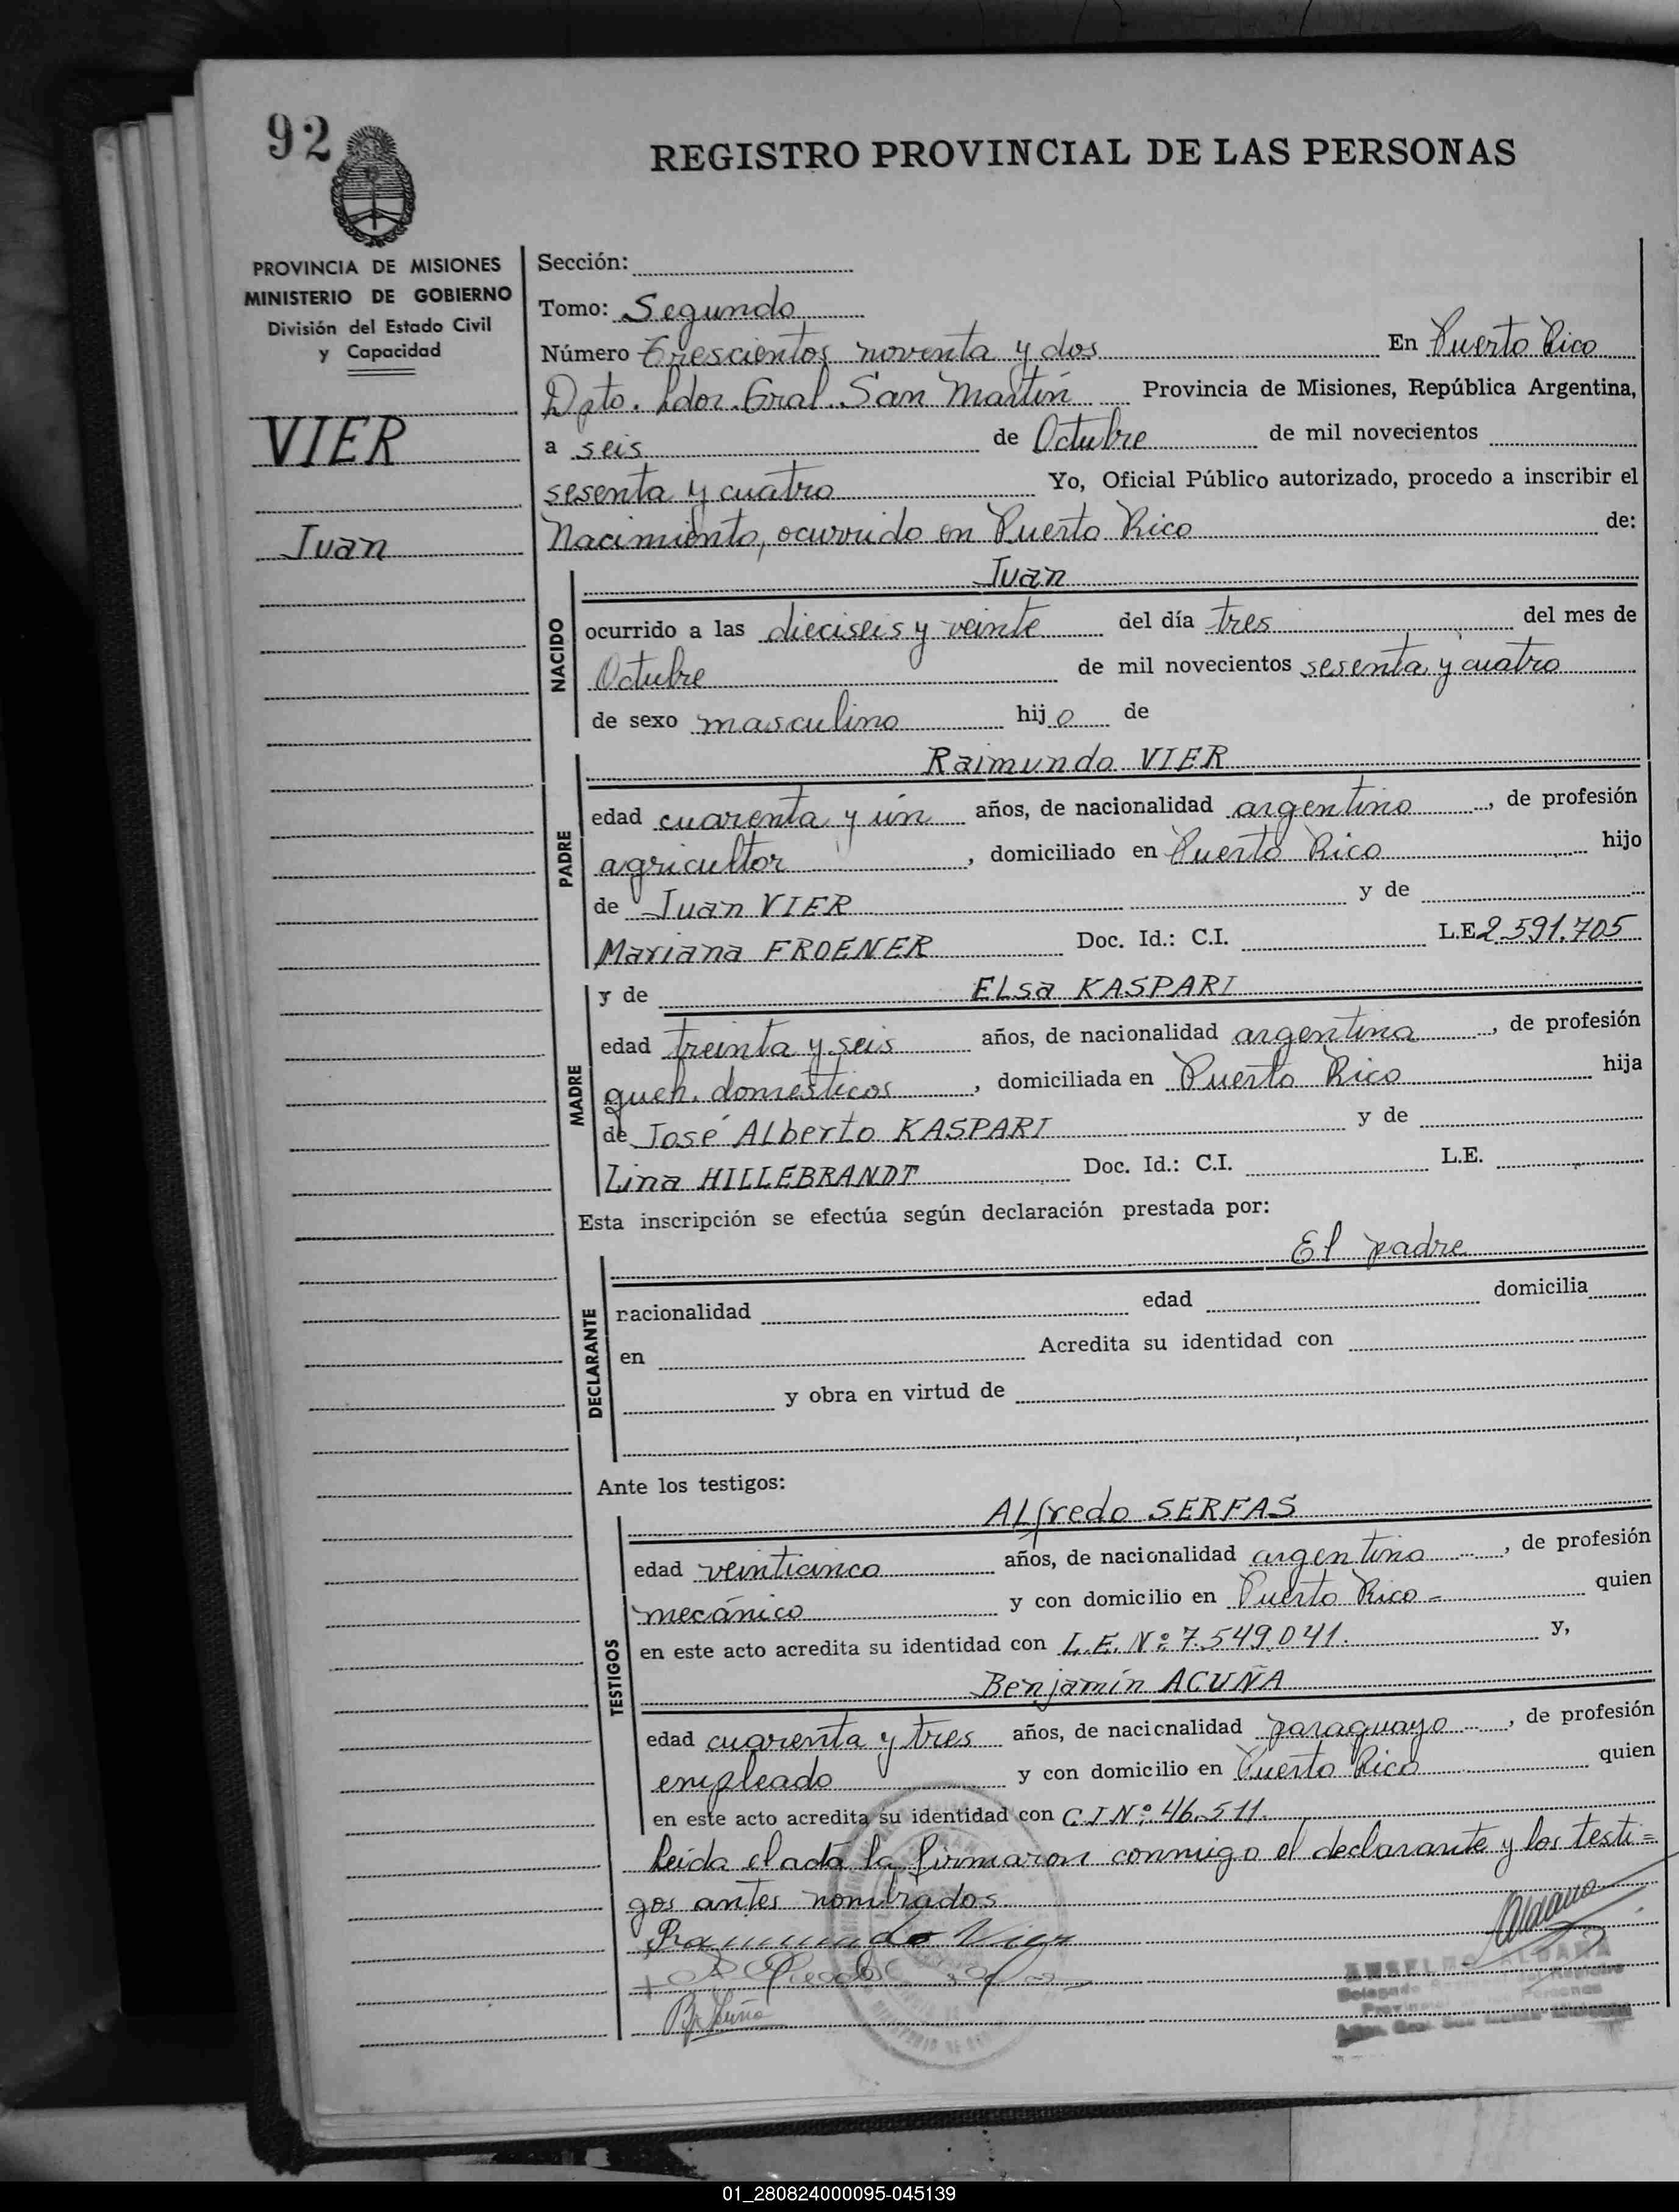 92
REGISTRO PROVINCIAL DE LAS PERSONAS
PROVINCIA DE MISIONES
MINISTERIO DE GOBIERNO
División del Estado Civil
y Capacidad
VIER
Juan
Sección:
Tomo: Segundo
Número Trescientos noventa y dos En Puerto Rico
Dpto. Ldor. Gral. San Martín Provincia de Misiones, República Argentina,
a seis de Octubre de mil novecientos
sesenta y cuatro Yo, Oficial Público autorizado, procedo a inscribir el
Nacimiento, ocurrido en Puerto Rico de:
NACIDO
Juan
ocurrido a las dieciseis y veinte del día tres del mes de
Octubre de mil novecientos sesenta y cuatro
de sexo masculino hijo de
PADRE
Raimundo VIER
edad cuarenta y ún años, de nacionalidad argentino, de profesión
agricultor, domiciliado en Puerto Rico hijo
de Juan VIER y de
Mariana FROENER Doc. Id.: C.I. L.E 2.591.705
MADRE
y de ELsa KASPARI
edad treinta y seis años, de nacionalidad argentina, de profesión
queh. domesticos, domiciliada en Puerto Rico hija
de José ALberto KASPARI y de
Lina HILLEBRANDT Doc. Id.: C.I. L.E.
Esta inscripción se efectúa según declaración prestada por:
DECLARANTE
El padre
nacionalidad edad domicilia
en Acredita su identidad con
y obra en virtud de
Ante los testigos:
TESTIGOS
ALfredo SERFAS
edad veinticinco años, de nacionalidad argentino, de profesión
mecánico y con domicilio en Puerto Rico - quien
en este acto acredita su identidad con L.E. Nº: 7.549.041. y,
Benjamín ACUÑA
edad cuarenta y tres años, de nacionalidad paraguayo, de profesión
empleado y con domicilio en Puerto Rico quien
en este acto acredita su identidad con C.I Nº: 46.511.
Leida el acta la firmaron conmigo el declarante y los testi=
gos antes nombrados.
Raimundo Vier
ANSELMO ALDANA
01_280824000095-045139